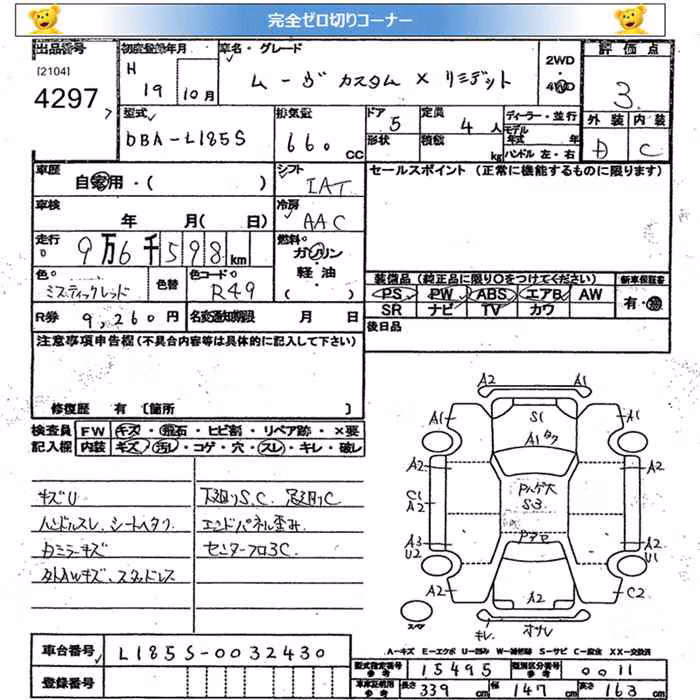 完全ゼロ切りコーナー
出品番号 初度登録年月 車名・グレード 2WD 評価点
[2104] H 4WD
4297 19 10月 ムーヴ カスタム X リミテッド 3
型式 排気量 ドア 定員 ディーラー・並行 外装 内装
DBA-L185S 660 CC 5 4人 モデル年式 年 D C
形状 積載 kg ハンドル 左・右
車歴 シフト セールスポイント (正常に機能するものに限ります)
自家用・( ) IAT
車検 冷房
年 月( 日) AAC
走行 燃料
9万6千598km ガソリン
軽油
色 色替 色コードNo ( )
ミスティックレッド R49
装備品 (純正品に限り○をつけてください) 新車保証書
PS PW ABS エアB AW 有・無
SR ナビ TV カワ
R券 9,260円 名変通知期限 月 日
後日品
注意事項申告欄 (不具合内容等は具体的に記入して下さい)
修復歴 有 [箇所 ]
検査員 FW キズ・飛石・ヒビ割・リペア跡・×要
記入欄 内装 キズ・汚レ・コゲ・穴・スレ・キレ・破レ
キズU 下廻りS.C. 足廻りC
ハンドルスレ、シートヘタリ エンドパネル歪み
カミラーキズ センターフロ3C
タトAWキズ、スタッドレス
A2 A1
A1 S1 A1
A1
A2 A2
Pハゲ大
C1 S3
A2
A3 Pアセ A2
U2 U1
A2 A2 C2
スペア キレ オサレ
A-キズ E-エクボ U-凹み W-補修跡 S-サビ C-腐食 XX-交換済
車台番号 L185S-0032430
型式指定番号 参考 15495 類別区分番号 参考 0011
登録番号
車庫証明用 参考 長さ 339cm 幅 147cm 高さ 163cm